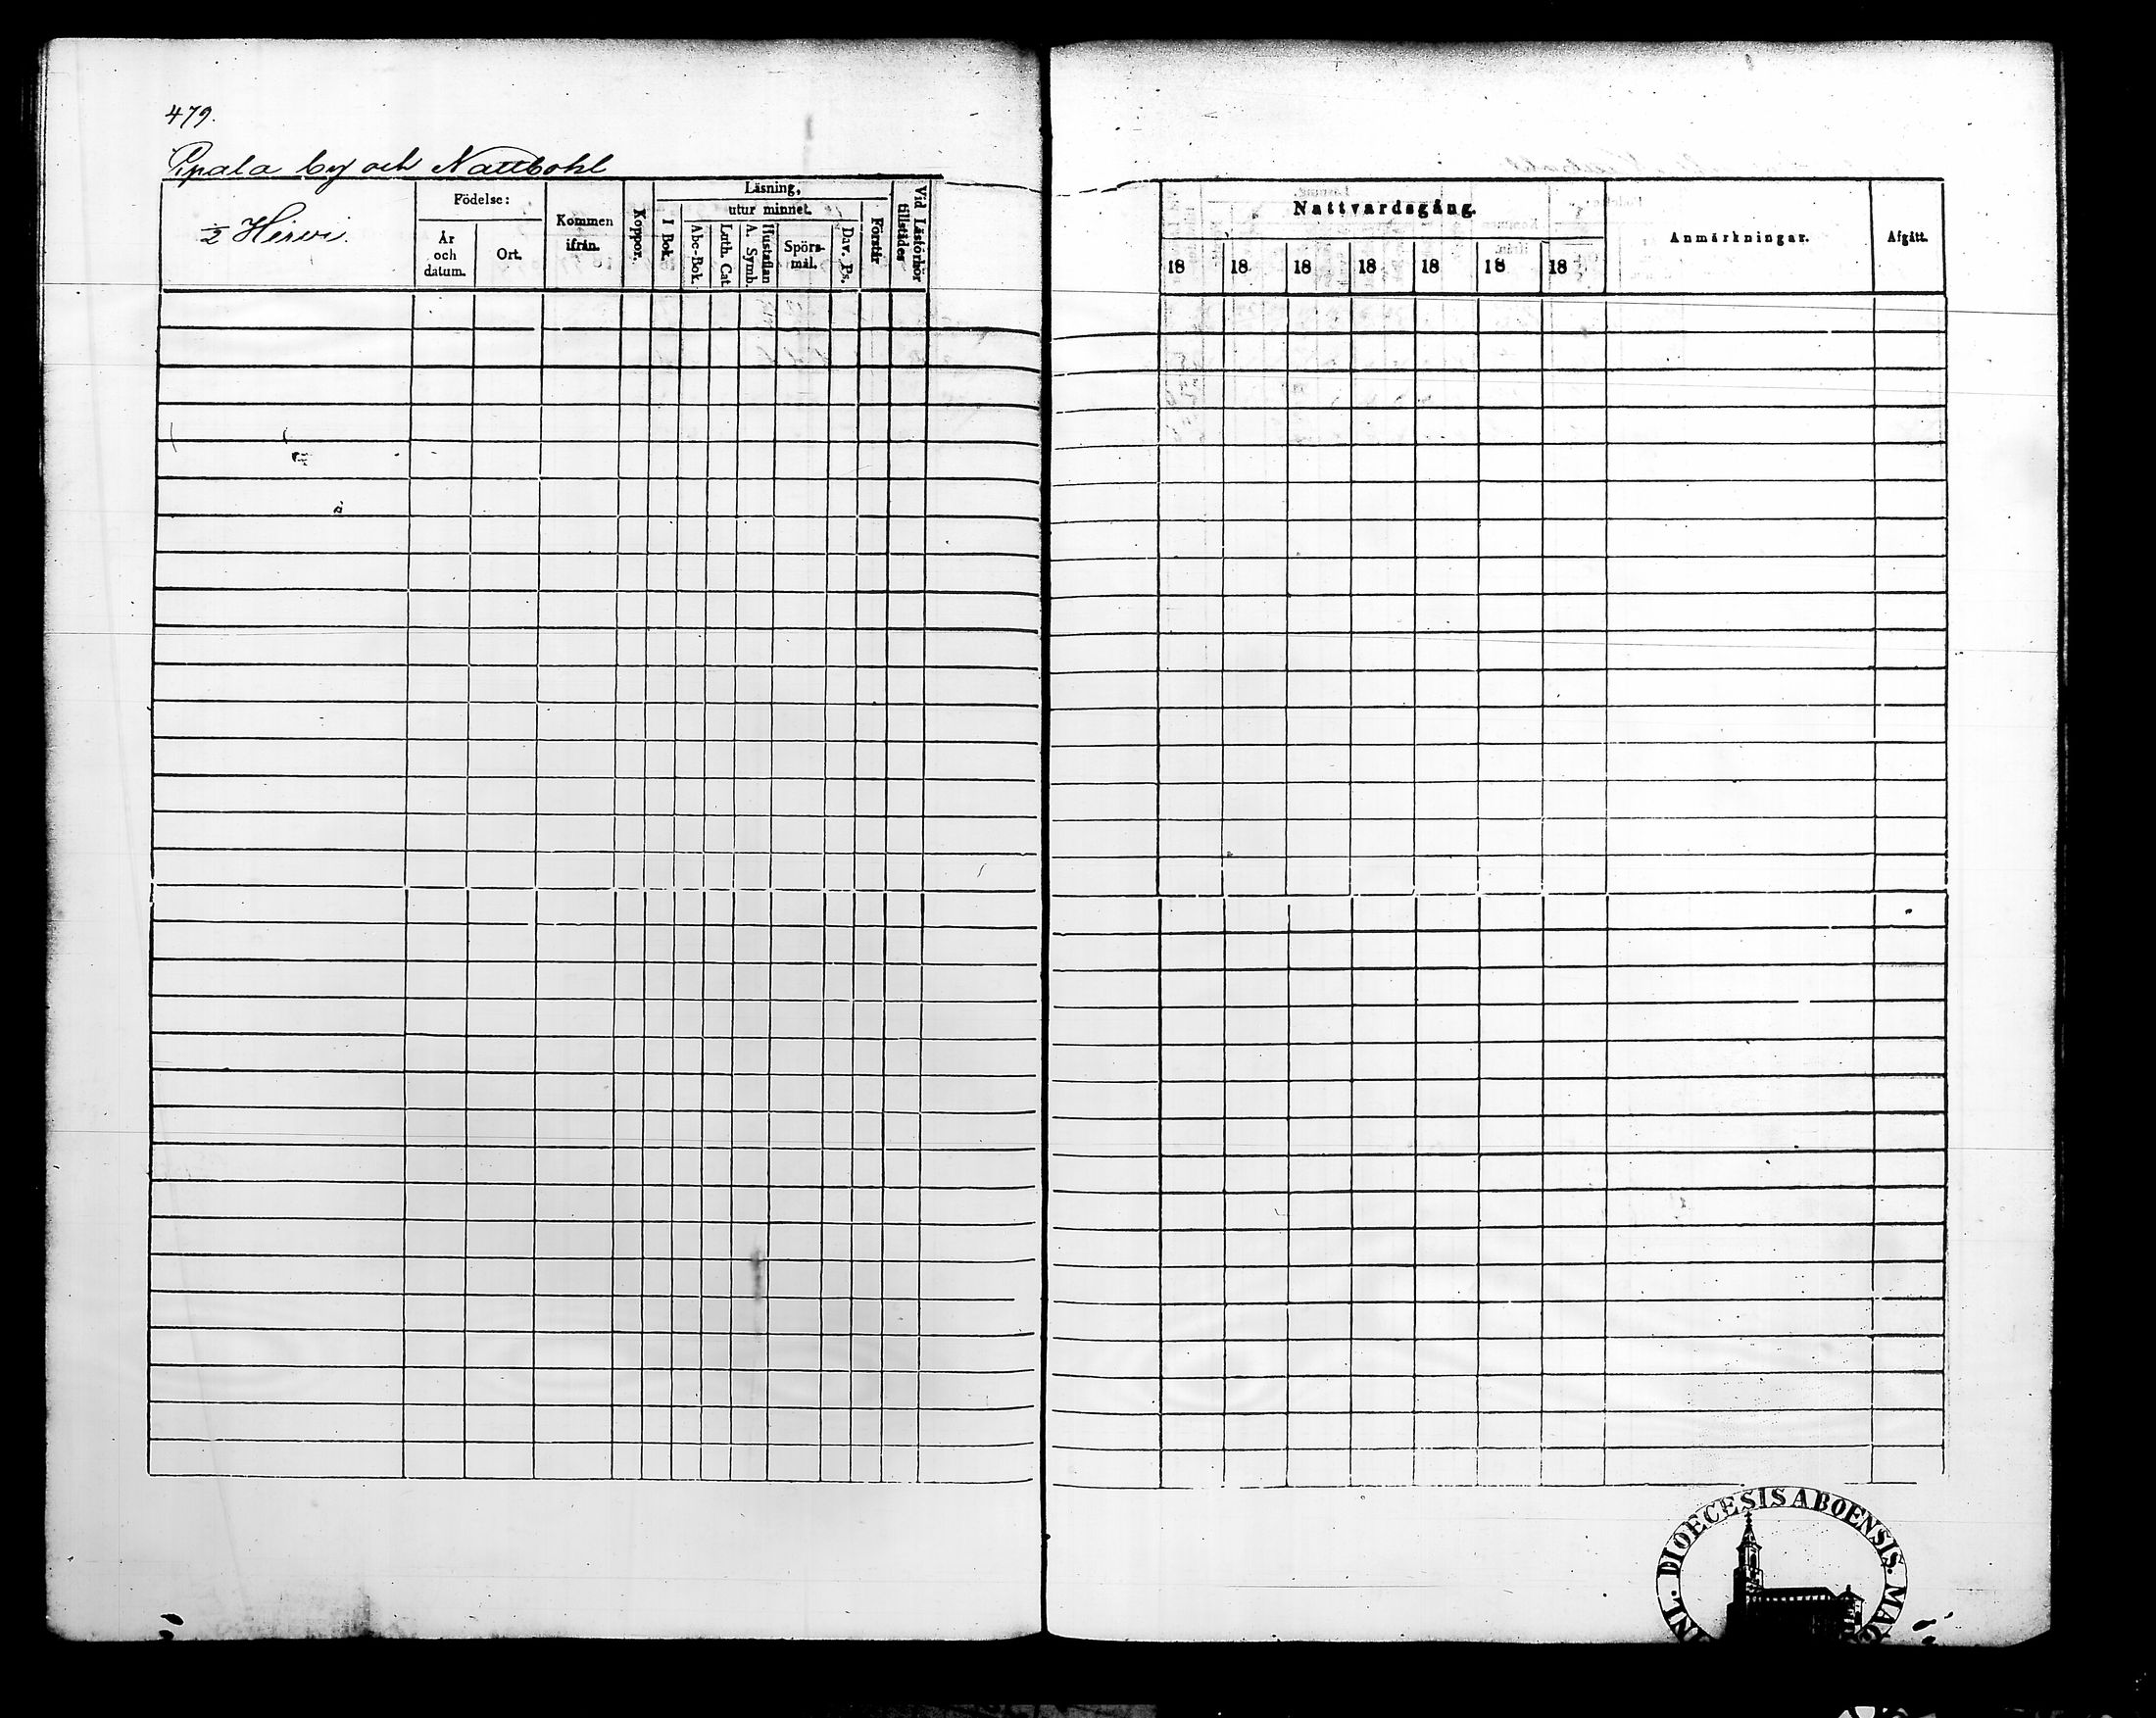 479.
Pipala by och Nattbohl
½ Hirvi.
Födelse:
År och datum.
Ort.
Kommen ifrån.
Koppor.
Läsning,
I Bok.
utur minnet.
Abc-Bok.
Luth. Cat.
Hustaflan A. Symb.
Spörs-mål.
Dav. Ps.
Förstår
Vid Läsförhör tillstädes
Nattvardsgång.
18 18 18 18 18 18 18
Anmärkningar.
Afgått.
DIOECESIS ABOENSIS.